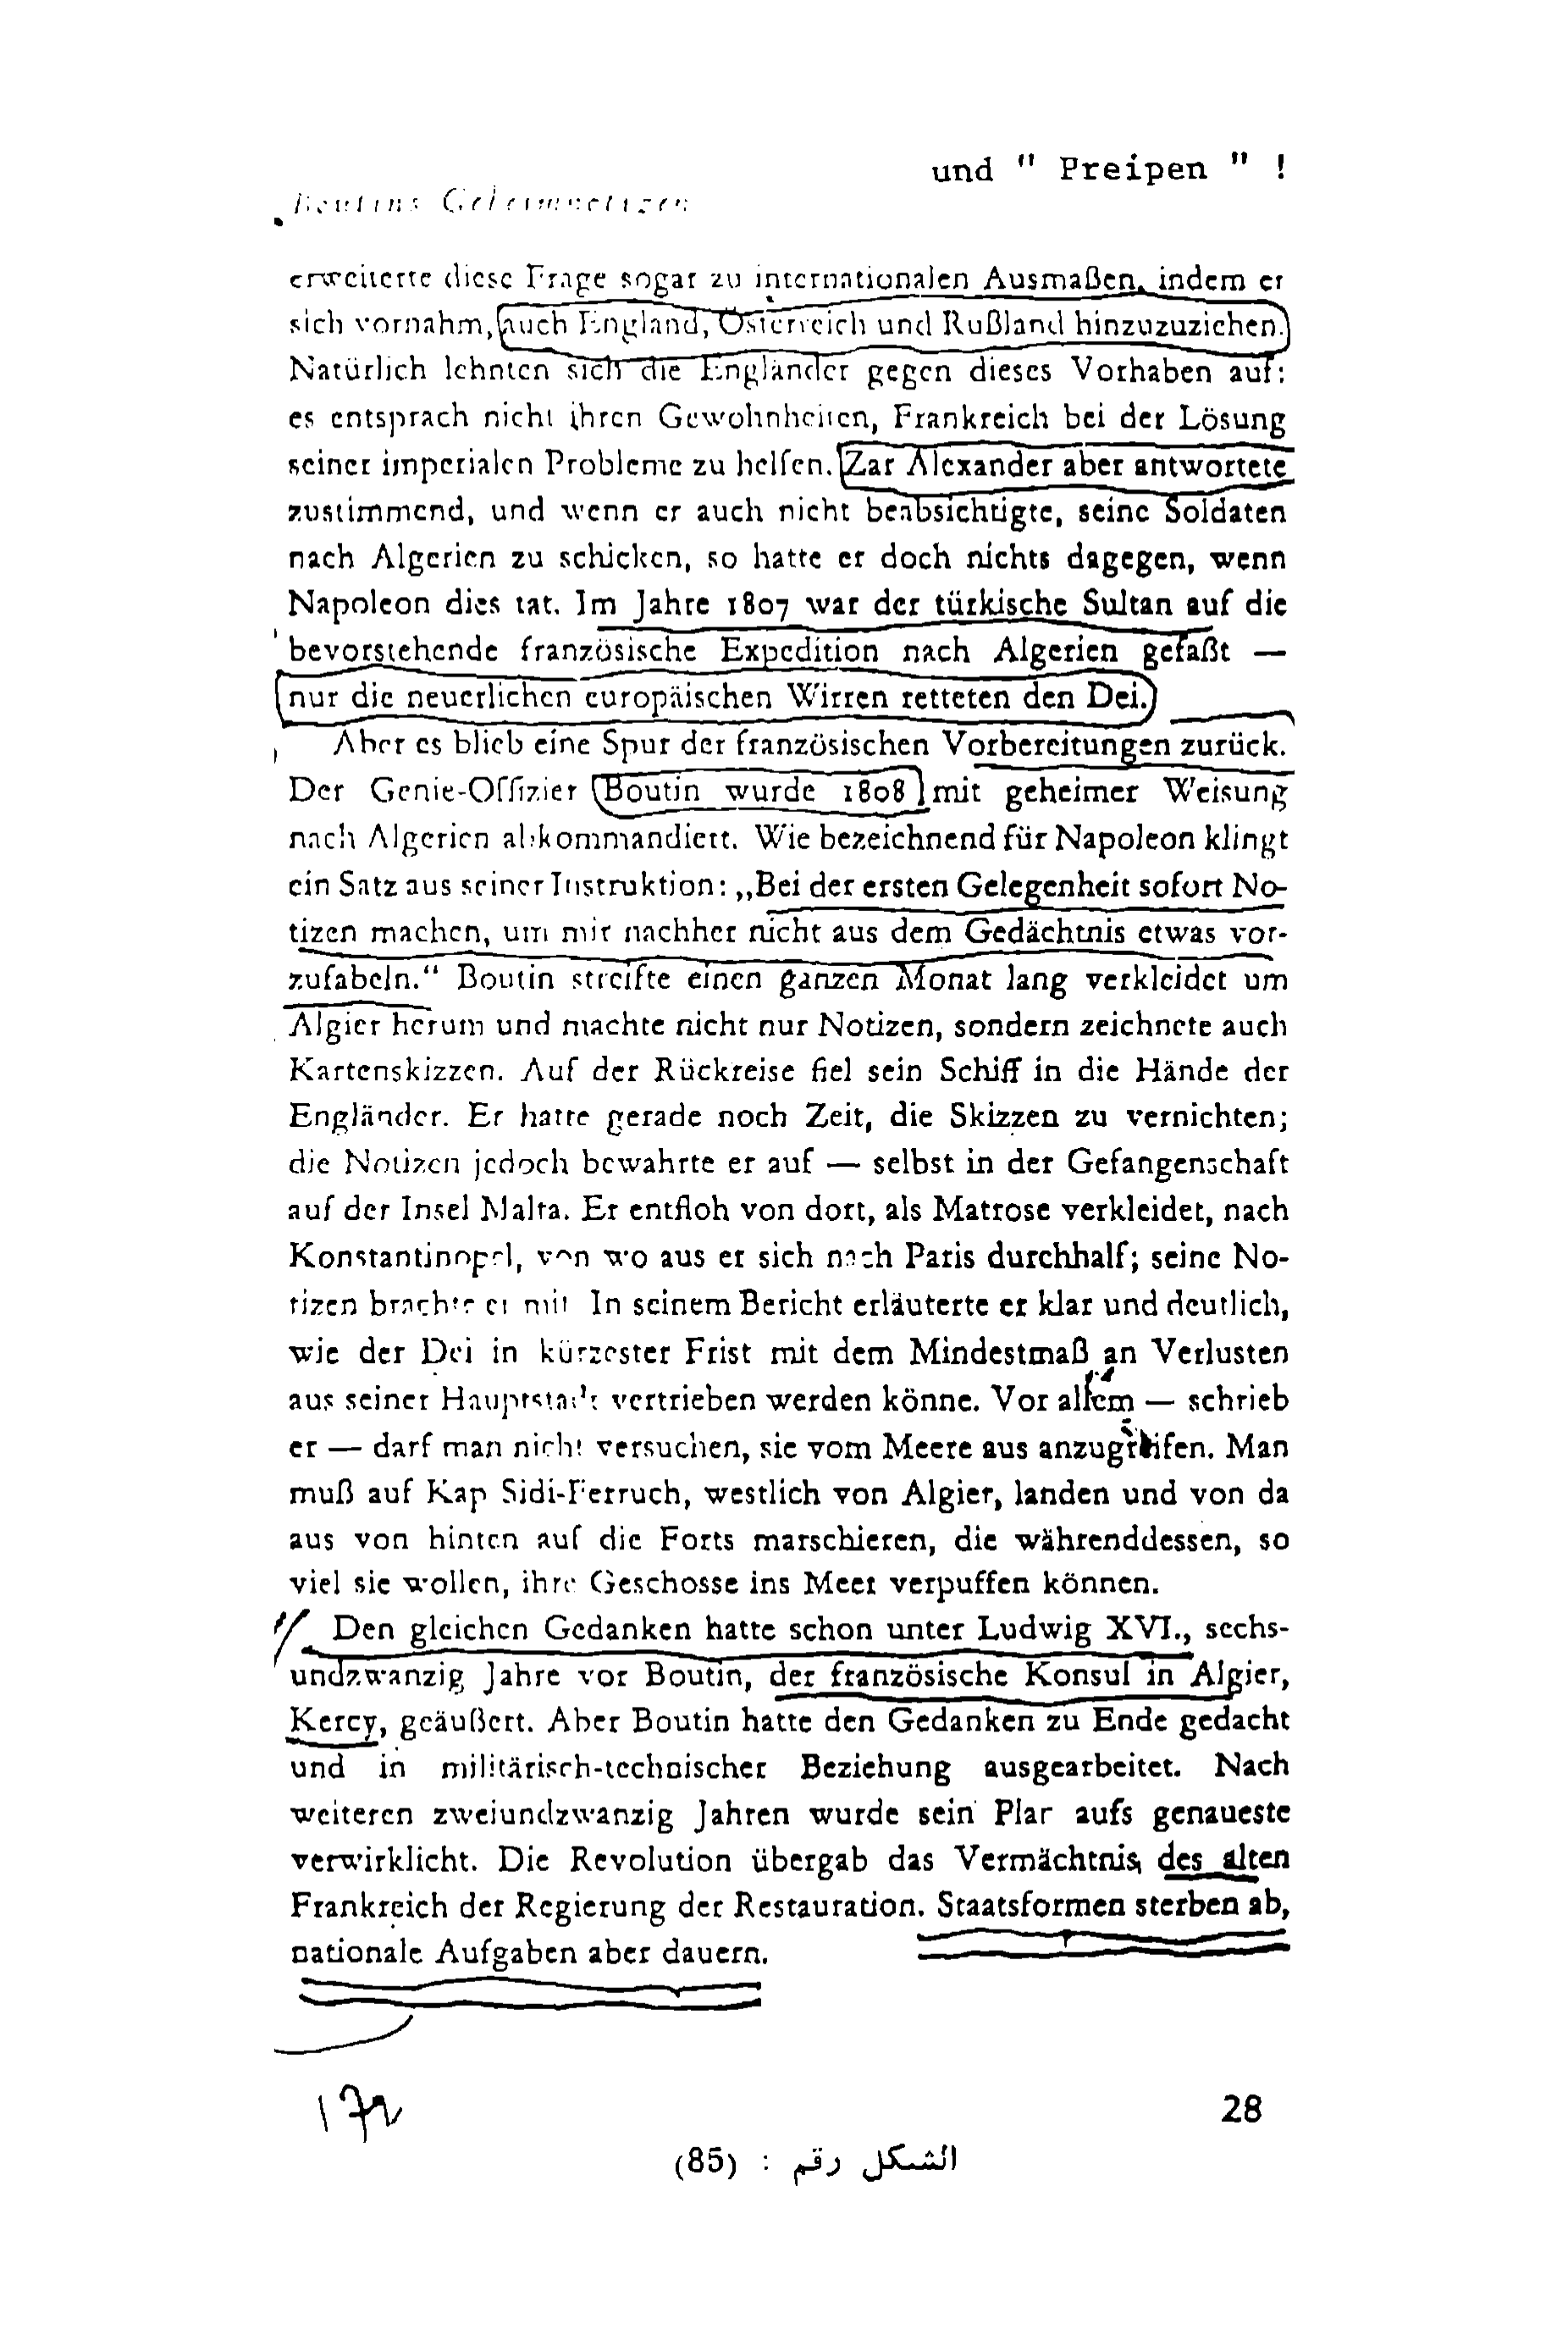 und " Preipen " !
Boutins Geheimnotizen
erweiterte diese Frage sogar zu internationalen Ausmaßen, indem er
sich vornahm, auch England, Österreich und Rußland hinzuzuziehen.
Natürlich lehnten sich die Engländer gegen dieses Vorhaben auf:
es entsprach nicht ihren Gewohnheiten, Frankreich bei der Lösung
seiner imperialen Probleme zu helfen. Zar Alexander aber antwortete
zustimmend, und wenn er auch nicht beabsichtigte, seine Soldaten
nach Algerien zu schicken, so hatte er doch nichts dagegen, wenn
Napoleon dies tat. Im Jahre 1807 war der türkische Sultan auf die
bevorstehende französische Expedition nach Algerien gefaßt —
nur die neuerlichen europäischen Wirren retteten den Dei.
Aber es blieb eine Spur der französischen Vorbereitungen zurück.
Der Genie-Offizier Boutin wurde 1808 mit geheimer Weisung
nach Algerien abkommandiert. Wie bezeichnend für Napoleon klingt
ein Satz aus seiner Instruktion: „Bei der ersten Gelegenheit sofort No-
tizen machen, um mir nachher nicht aus dem Gedächtnis etwas vor-
zufabeln.“ Boutin streifte einen ganzen Monat lang verkleidet um
Algier herum und machte nicht nur Notizen, sondern zeichnete auch
Kartenskizzen. Auf der Rückreise fiel sein Schiff in die Hände der
Engländer. Er hatte gerade noch Zeit, die Skizzen zu vernichten;
die Notizen jedoch bewahrte er auf — selbst in der Gefangenschaft
auf der Insel Malta. Er entfloh von dort, als Matrose verkleidet, nach
Konstantinopel, von wo aus er sich nach Paris durchhalf; seine No-
tizen brachte er mit In seinem Bericht erläuterte er klar und deutlich,
wie der Dei in kürzester Frist mit dem Mindestmaß an Verlusten
aus seiner Hauptstadt vertrieben werden könne. Vor allem — schrieb
er — darf man nicht versuchen, sie vom Meere aus anzugreifen. Man
muß auf Kap Sidi-Ferruch, westlich von Algier, landen und von da
aus von hinten auf die Forts marschieren, die währenddessen, so
viel sie wollen, ihre Geschosse ins Meer verpuffen können.
Den gleichen Gedanken hatte schon unter Ludwig XVI., sechs-
undzwanzig Jahre vor Boutin, der französische Konsul in Algier,
Kercy, geäußert. Aber Boutin hatte den Gedanken zu Ende gedacht
und in militärisch-technischer Beziehung ausgearbeitet. Nach
weiteren zweiundzwanzig Jahren wurde sein Plan aufs genaueste
verwirklicht. Die Revolution übergab das Vermächtnis des alten
Frankreich der Regierung der Restauration. Staatsformen sterben ab,
nationale Aufgaben aber dauern.
28
الشكل رقم : (85)